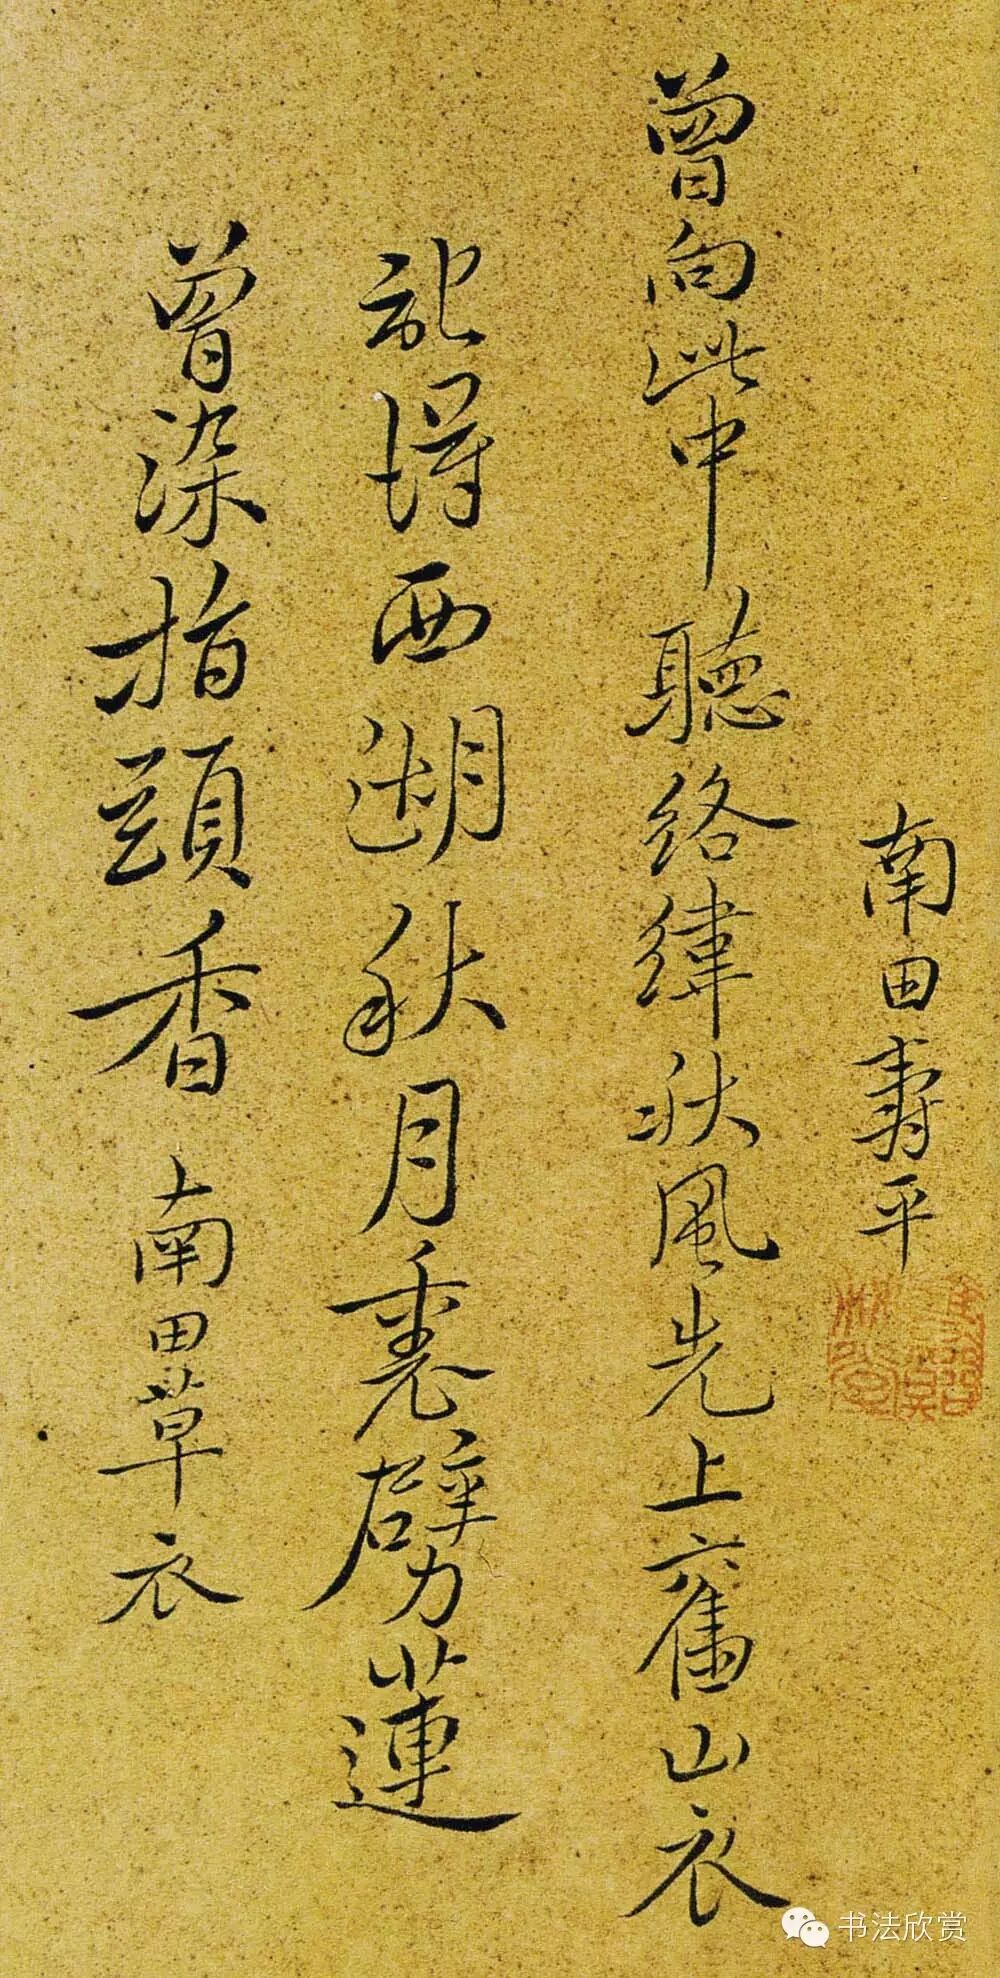 南田壽平
曾向此中聽絡緯秋風先上舊山衣
記得西湖秋月裏劈蓮
曾染指頭香 南田草衣
书法欣赏